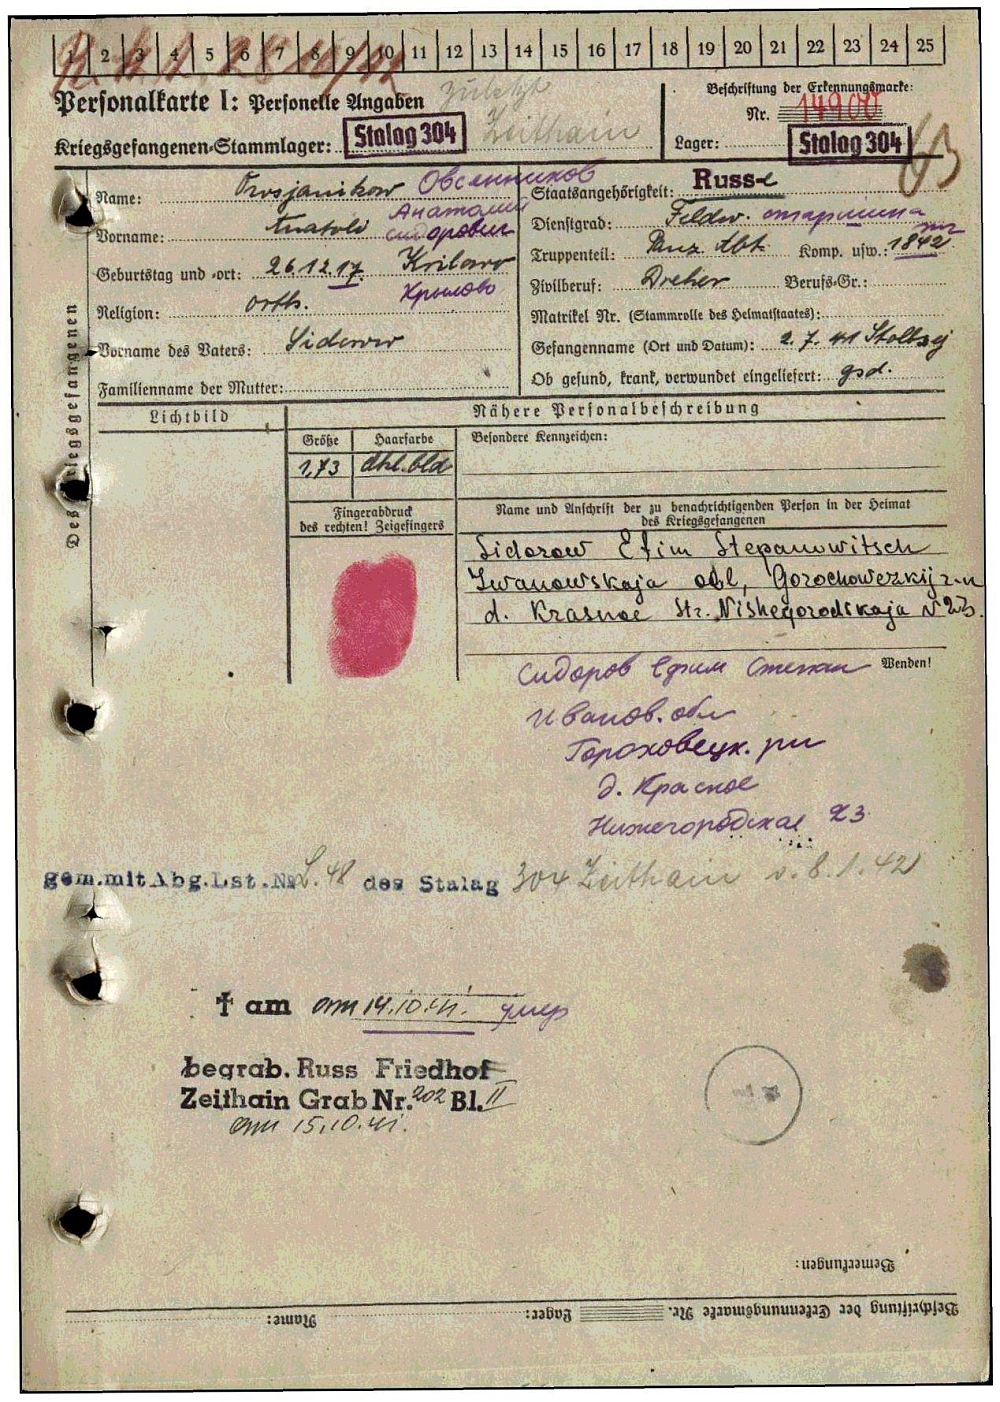 1 2 3 4 5 6 7 8 9 10 11 12 13 14 15 16 17 18 19 20 21 22 23 24 25
Personalkarte I: Personelle Angaben
zuletzt
Zeithain
Kriegsgefangenen-Stammlager: Stalag 304
Beschriftung der Erkennungsmarke:
Nr. 14900
Lager: Stalag 304
Des Kriegsgefangenen
Name: Owsjanikow Овсянников
Vorname: Anatoli Анатолий
Сидорович
Geburtstag und -ort: 26.12.17. Krilowo
Крылово
Religion: orth.
Vorname des Vaters: Sidorow
Familienname der Mutter:
Staatsangehörigkeit: Russ-e
Dienstgrad: Feldw. старшина
Truppenteil: Panz. Abt. Komp. usw.: 1842
Zivilberuf: Dreher Berufs-Gr.:
Matrikel Nr. (Stammrolle des Heimatstaates):
Gefangenname (Ort und Datum): 2.7.41 Stolbzy
Ob gesund, krank, verwundet eingeliefert: gsd.
Lichtbild
Nähere Personalbeschreibung
Größe Haarfarbe Besondere Kennzeichen:
1,73 dkl.bld
Fingerabdruck
des rechten! Zeigefingers
Name und Anschrift der zu benachrichtigenden Person in der Heimat
des Kriegsgefangenen
Sidorow Efim Stepanowitsch
Iwanowskaja obl, Gorochowezkij r-n
d. Krasnoe Str. Nishegorodskaja N 23.
Wenden!
Сидоров Ефим Степан
Иванов. обл
Гороховецк. рн
д. Красное
Нижегородская 23
gem.mit Abg.Lst.No L. 48 des Stalag 304 Zeithain v. 8.1.42
† am am 14.10.41. умер
begrab. Russ Friedhof
Zeithain Grab Nr. 202 Bl. II
am 15.10.41.
Bemerkungen:
Beschriftung der Erkennungsmarke Nr. Lager: Name: